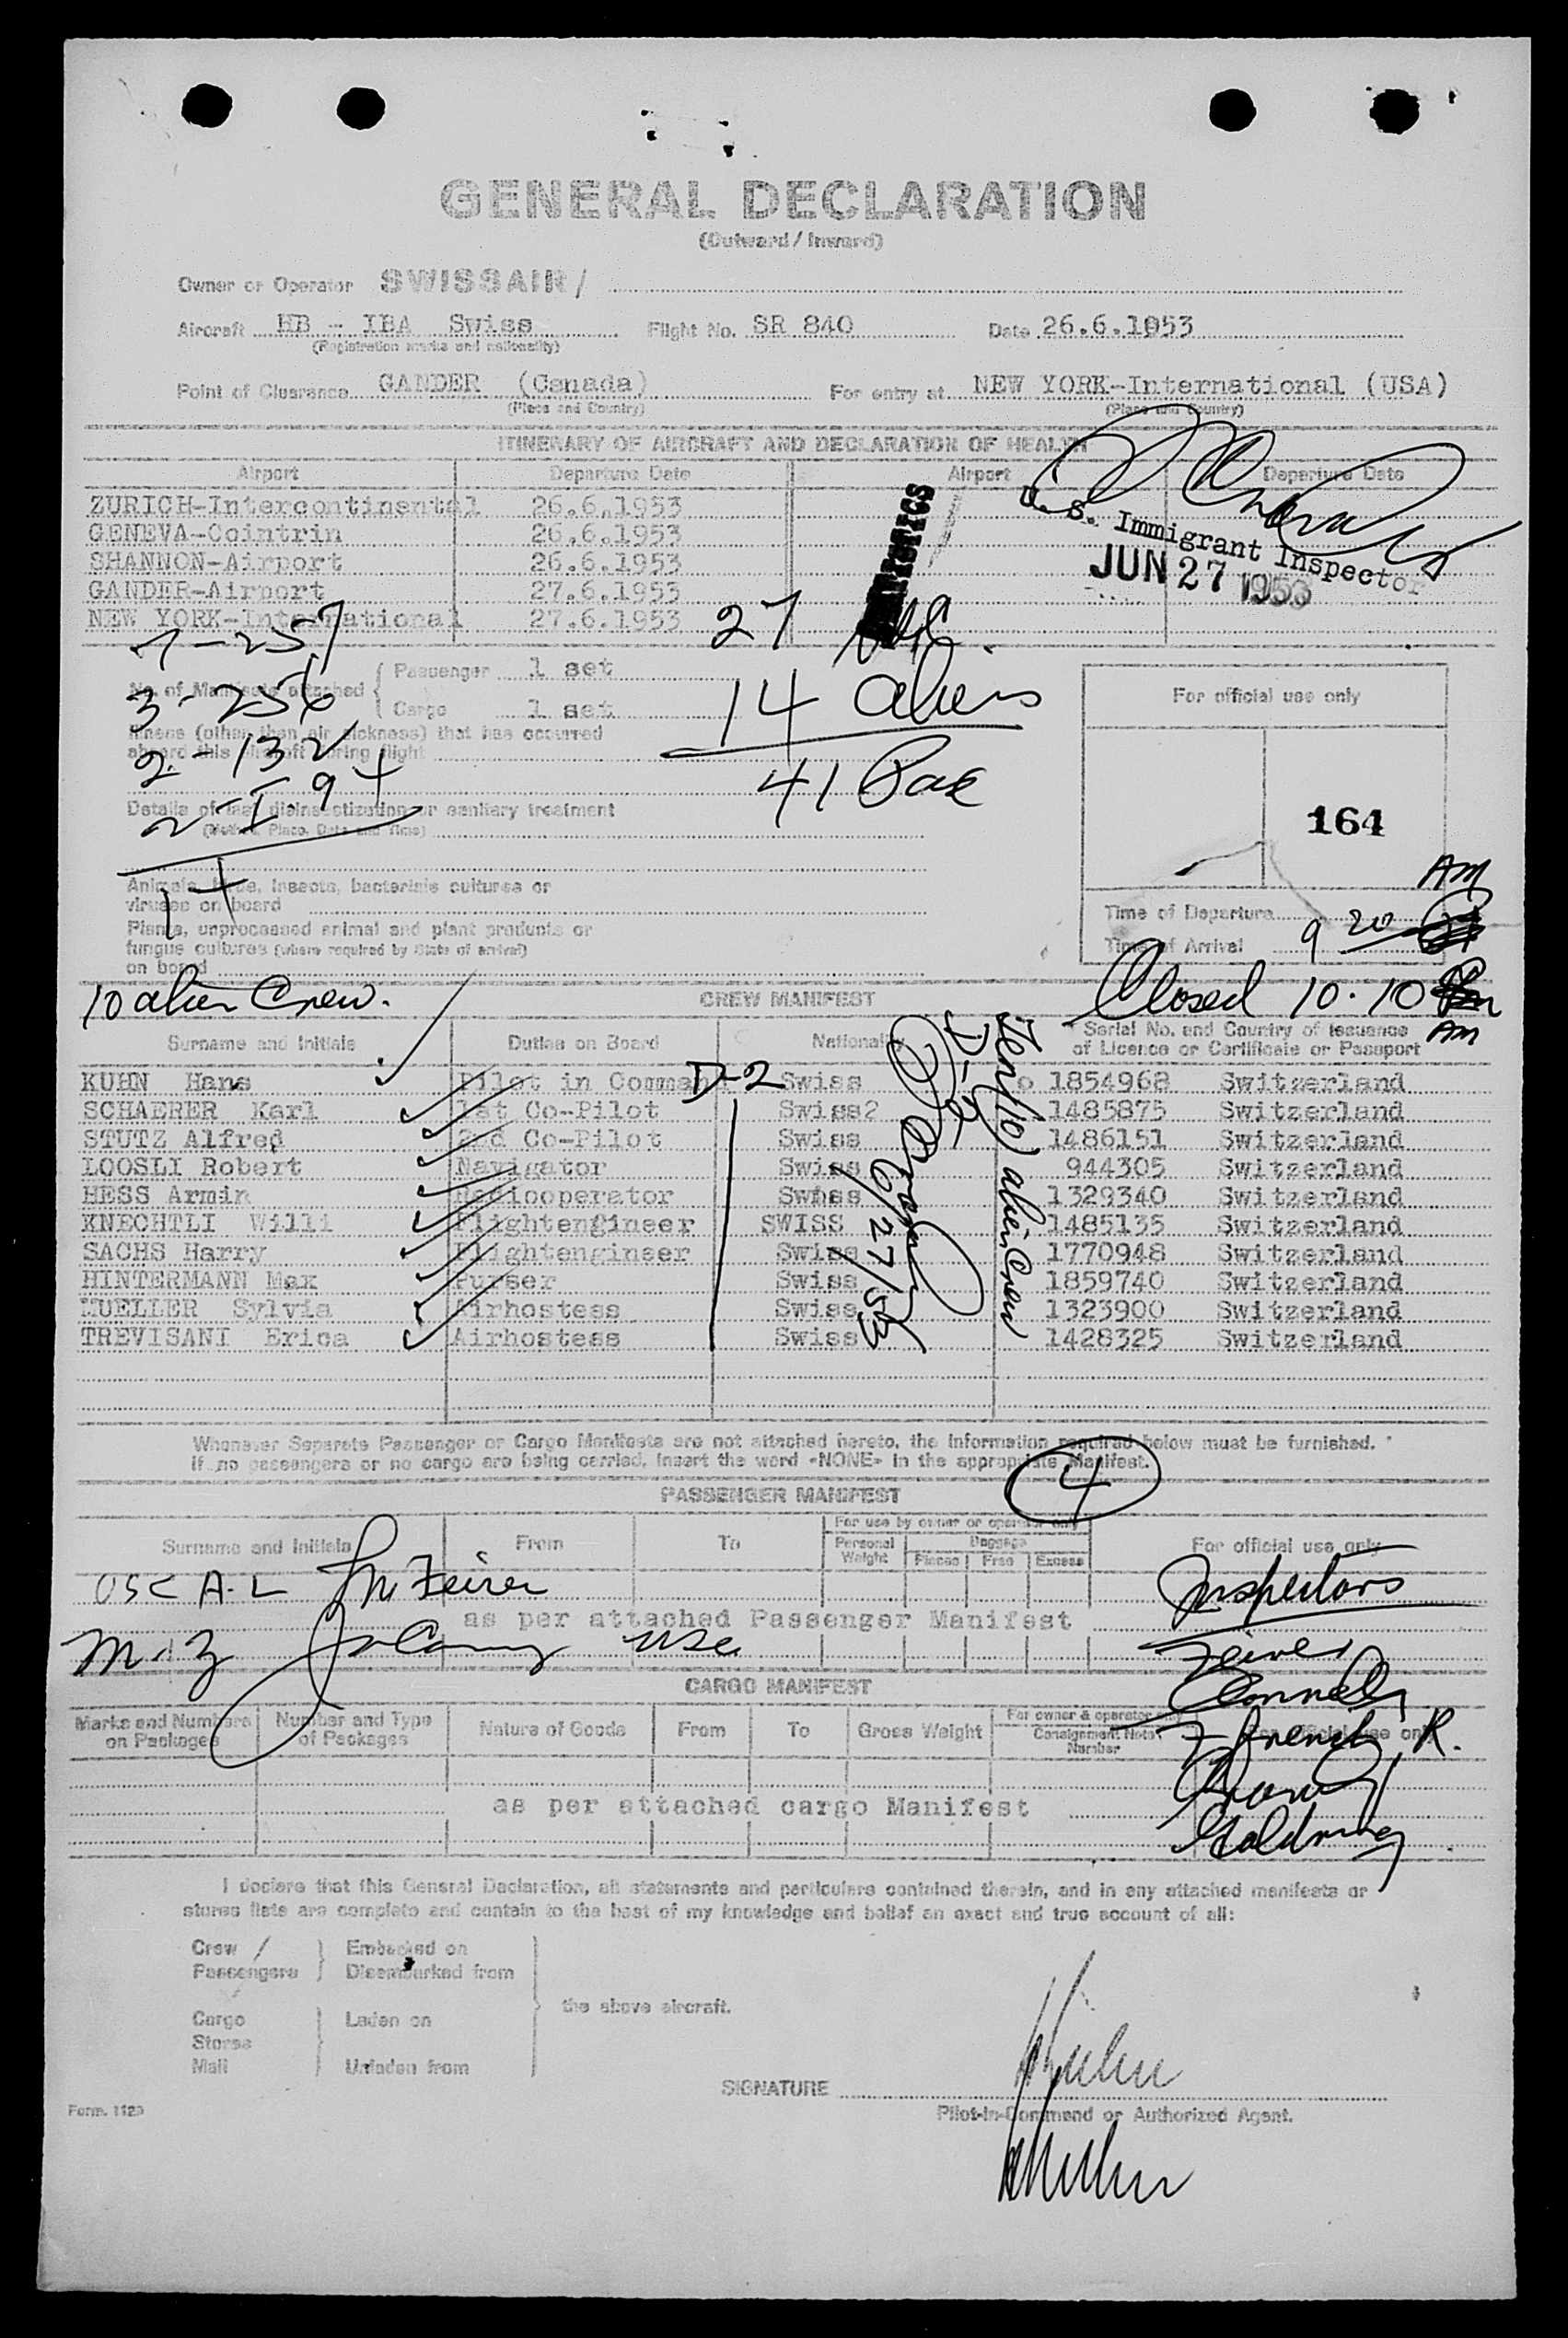 GENERAL DECLARATION
(Outward / Inward)
Owner or Operator SWISSAIR /
Aircraft HB - IBA Swiss Flight No. SR 840 Date 26.6.1953
(Registration marks and nationality)
Point of Clearance GANDER (Canada) For entry at NEW YORK-International (USA)
(Place and Country) (Place and Country)
ITINERARY OF AIRCRAFT AND DECLARATION OF HEALTH
Airport Departure Date Airport Departure Date
ZURICH-Intercontinental 26.6.1953
GENEVA-Cointrin 26.6.1953
SHANNON-Airport 26.6.1953
GANDER-Airport 27.6.1953
NEW YORK-International 27.6.1953
U.S. Immigrant Inspector
JUN 27 1953
27
7-257
3-256
2-132
14 aliens
41 Pax
No. of Manifests attached
Passenger 1 set
Cargo 1 set
Illness (other than air sickness) that has occurred
aboard this aircraft during flight
Details of last disinsectization or sanitary treatment
(Method, Place, Date and Time)
Animals, birds, insects, bacterials cultures or
viruses on board
Plants, unprocessed animal and plant products or
fungus cultures (where required by State of arrival)
on board
14
For official use only
164
AM
Time of Departure
Time of Arrival 9 20
Closed 10.10
AM
10 alien Crew.
CREW MANIFEST
Surname and Initials Duties on Board Nationality Serial No. and Country of Issuance
of Licence or Certificate or Passport
KUHN Hans Pilot in Command D-2 Swiss 1854968 Switzerland
SCHAERER Karl 1st Co-Pilot Swiss2 1485875 Switzerland
STUTZ Alfred 2nd Co-Pilot Swiss 1486151 Switzerland
LOOSLI Robert Navigator Swiss 944305 Switzerland
HESS Armin Radiooperator Swhss 1329340 Switzerland
KNECHTLI Willi Flightengineer SWISS 1485135 Switzerland
SACHS Harry Flightengineer Swiss 1770948 Switzerland
HINTERMANN Max Purser Swiss 1859740 Switzerland
MUELLER Sylvia Airhostess Swiss 1323900 Switzerland
TREVISANI Erica Airhostess Swiss 1428325 Switzerland
Ten (10) alien Crew
D-2
6/27/53
Whenever Separate Passenger or Cargo Manifests are not attached hereto, the information required below must be furnished.
If no passengers or no cargo are being carried, insert the word «NONE» in the appropriate Manifest.
4
PASSENGER MANIFEST
Surname and Initials From To For use by owner or operator only For official use only
Personal Weight Baggage
Pieces Free Excess
USC A-L Feirer
as per attached Passenger Manifest
M-Z usc
Inspectors
Feirer
Connelly
French, R.
CARGO MANIFEST
Marks and Numbers on Packages Number and Type of Packages Nature of Goods From To Gross Weight For owner & operator only For official use only
Consignment Note Number
as per attached cargo Manifest
I declare that this General Declaration, all statements and particulars contained therein, and in any attached manifests or
stores lists are complete and contain to the best of my knowledge and belief an exact and true account of all:
Crew / Embarked on
Passengers Disembarked from
the above aircraft.
Cargo Laden on
Stores
Mail Unladen from
SIGNATURE Kuhn
Form. 1123 Pilot-in-Command or Authorized Agent.